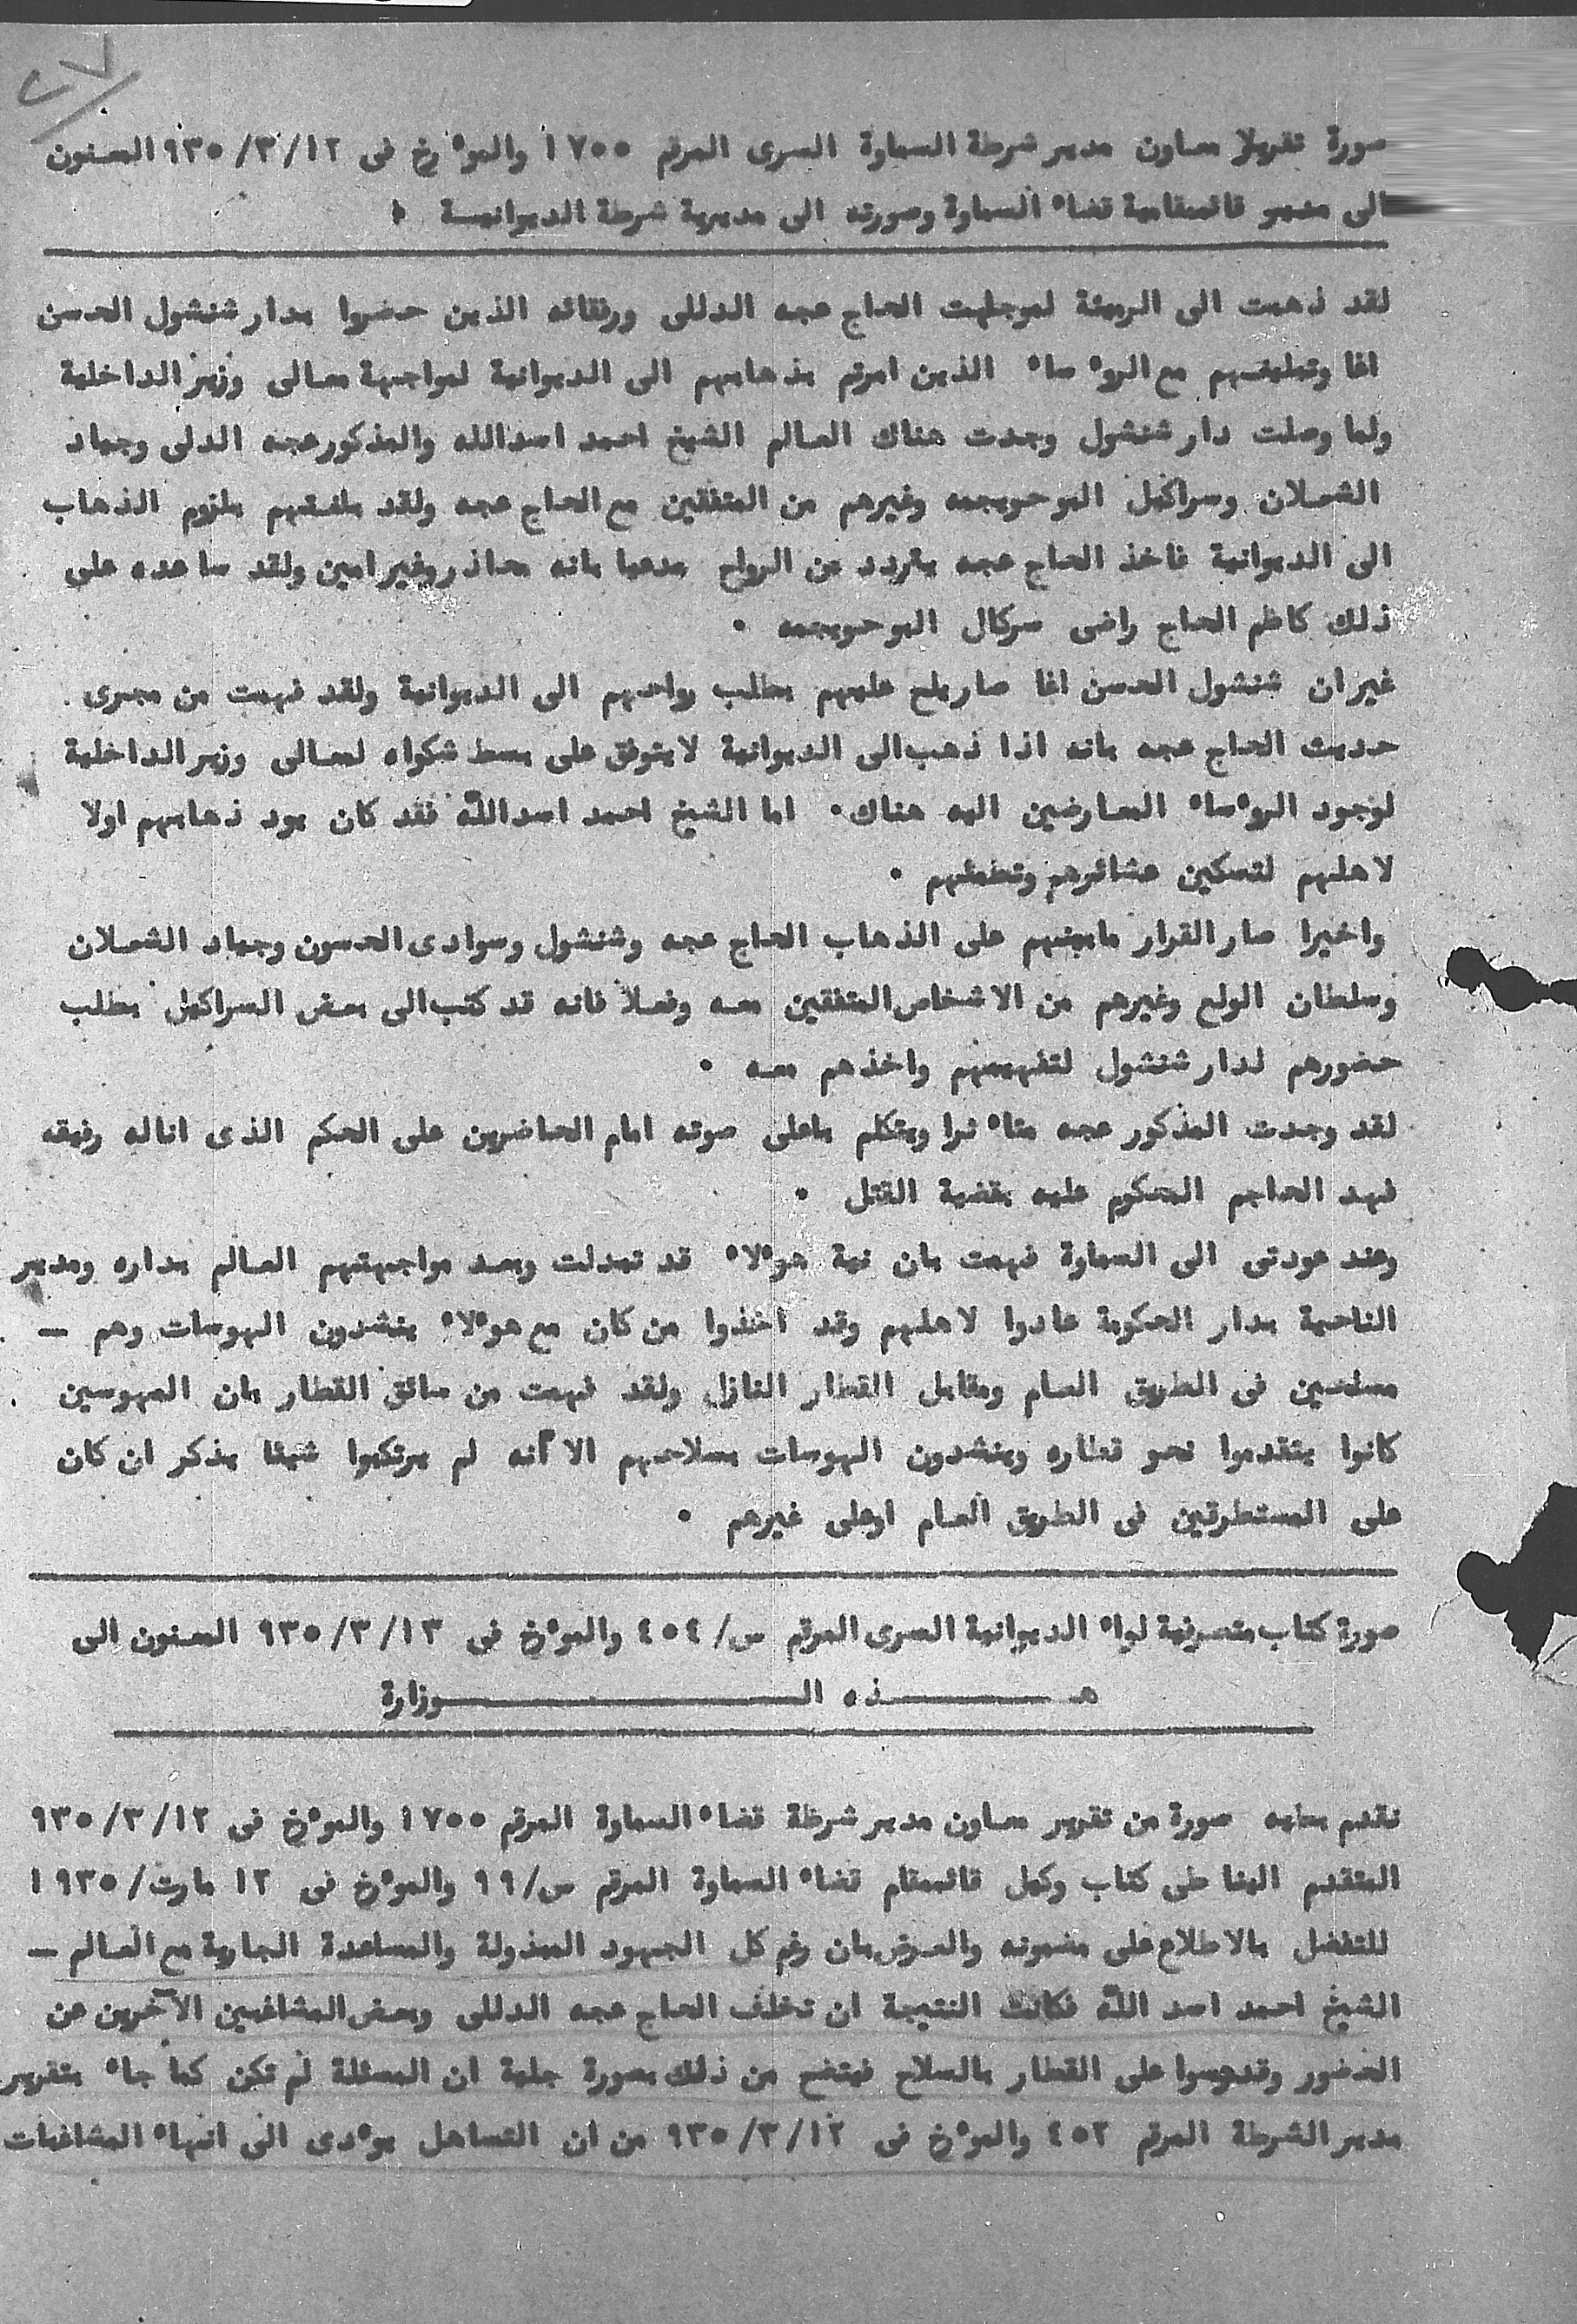 ٢٧
صورة تقرير معاون مدير شرطة السماوة السرى المرقم ١٧٥٥ والموءرخ فى ٩٣٥/٣/١٢ المعنون
الى قائمقامية قضاء السماوة وصورته الى مديرية شرطة الديوانيسة
لقد ذهبت الى الرميثة لموجهة الحاج عجه الدللى ورفقائه الذين حضروا بدار شنشول الحسن
اغا وتبليغهم مع الروءساء الذين امرتم بذهابهم الى الديوانية لمواجهة معالى وزير الداخلية
ولما وصلت دار شنشول وجدت هناك العالم الشيخ احمد اسدالله والمذكور عجه الدلى وجياد
الشعلان وسراكيل البوحويجمه وغيرهم من المتفقين مع الحاج عجه ولقد بلغتهم بلزوم الذهاب
الى الديوانية فاخذ الحاج عجه يتردد من الرواح مدعيا بانه محاذر وغير امين ولقد ساعده على
ذلك كاظم الحاج راضى سركال البوحويجمه ٠
غير ان شنشول الحسن اغا صار يلح عليهم بطلب رواحهم الى الديوانية ولقد فهمت من مجرى
حديث الحاج عجه بانه اذا ذهب الى الديوانية لا يتوفق على بسط شكواه لمعالى وزير الداخلية
لوجود الروءساء المعارضين اليه هناك٠ اما الشيخ احمد اسدالله فقد كان يود ذهابهم اولا
لاهلهم لتسكين عشائرهم وتطمئنهم ٠
واخيرا صار القرار مابينهم على الذهاب الحاج عجه وشنشول وسوادى الحسون وجياد الشعلان
وسلطان الولع وغيرهم من الاشخاص المتفقين معه وفعلا فانه قد كتب الى بعض السراكيل بطلب
حضورهم لدار شنشول لتفهيمهم واخذهم معه ٠
لقد وجدت المذكور عجه متاءثرا ويتكلم باعلى صوته امام الحاضرين على الحكم الذى اناله رفيقه
فهد الحاجم المحكوم عليه بقضية القتل ٠
وعند عودتى الى السماوة فهمت بان نية هوءلاء قد تبدلت وبعد مواجهتهم العالم بداره ومدير
الناحية بدار الحكومة عادوا لاهلهم وقد اخذوا من كان مع هوءلاء ينشدون الهوسات وهم —
مسلحين فى الطريق العام ومقابل القطار النازل ولقد فهمت من سائق القطار بان المهوسين
كانوا يتقدموا نحو قطاره وينشدون الهوسات بسلاحهم الا أنه لم يرتكبوا شيئا يذكر ان كان
على المستطرقين فى الطريق العام اوعلى غيرهم ٠
صورة كتاب متصرفية لواء الديوانية السرى المرقم س/٤٥٤ والموءرخ فى ٩٣٥/٣/١٣ المعنون الى
هـــــذه الـــــــوزارة
نقدم بطيه صورة من تقرير معاون مدير شرطة قضاء السماوة المرقم ١٧٥٥ والموءرخ فى ٩٣٥/٣/١٢
المتقدم الينا طى كتاب وكيل قائممقام قضاء السماوة المرقم س/٩٩ والموءرخ فى ١٢ مارت/١٩٣٥
للتفضل بالاطلاع على مضمونه والعرض بان رغم كل الجهود المبذولة والمساعدة الجارية مع العالم —
الشيخ احمد اسد الله فكانت النتيجة ان تخلف الحاج عجه الدللى وبعض المشاغبين الآخرين عن
الحضور وقدهوسوا على القطار بالسلاح فيتضح من ذلك بصورة جلية ان المسئلة لم تكن كما جاء بتقرير
مدير الشرطة المرقم ٤٥٢ والموءرخ فى ٩٣٥/٣/١٢ من ان التساهل يوءدى الى انهاء المشاغبات